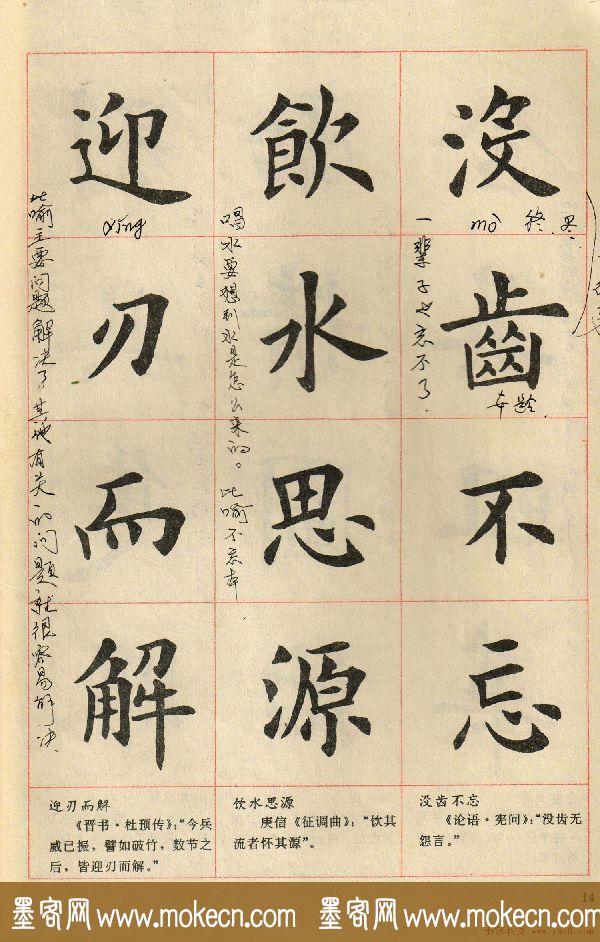 没齿不忘
mò 终.
一辈子也忘不了.
年龄.
飲水思源
喝水要想到水是怎么来的。比喻不忘本
迎刃而解
yíng
比喻主要问题解决了其他有关的问题就很容易解决.
没齿不忘
《论语·宪问》:“没齿无
怨言。”
饮水思源
庾信《征调曲》:“饮其
流者怀其源”。
迎刃而解
《晋书·杜预传》:“今兵
威已振,譬如破竹,数节之
后,皆迎刃而解。”
14
墨客网·www.mokecn.com 墨客网·www.mokecn.com